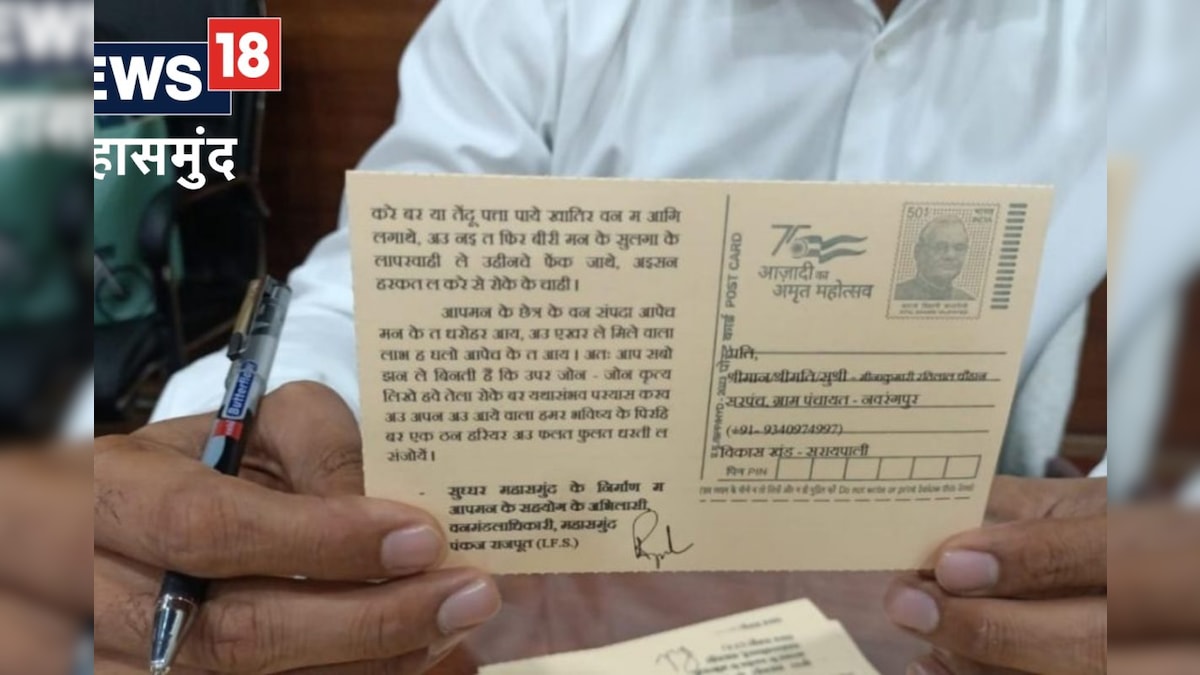 EWS 18
हासमुंद
करे बर या तेंदू पत्ता पाये खातिर वन म आगि
लगाथे, अउ नइ त फिर बीरी मन के सुलगा के
लापरवाही ले उहीनचे फेंक जाथे, अइसन
हरकत ल करे से रोके के चाही।
आपमन के छेत्र के वन संपदा आपेच
मन के त धरोहर आय, अउ एखर ले मिले वाला
लाभ ह घलो आपेच के त आय। अतः आप सबो
झन ले बिनती हैं कि उपर जोन - जोन कृत्य
लिखे हवे तेला रोके बर यथासंभव परयास करव
अउ अपन अउ आये वाला हमर भविष्य के पिरहि
बर एक ठन हरियर अउ फलत फुलत धरती ल
संजोयें।
- सुघ्घर महासमुंद के निर्माण म
आपमन के सहयोग के अभिलासी,
वनमंडलाधिकारी, महासमुंद
पंकज राजपूत (I.F.S.)
75
आज़ादी का
अमृत महोत्सव
50
भारत
INDIA
पोस्ट कार्ड POST CARD
प्रति,
श्रीमान/श्रीमति/सुश्री - मीनाकुमारी रतिलाल चौहान
सरपंच, ग्राम पंचायत - नवरंगपुर
(+91- 9340974997)
विकास खंड - सरायपाली
पिन PIN
इस लाइन के नीचे न तो लिखें और न ही मुद्रित करें Do not write or print below this line
Butterflow